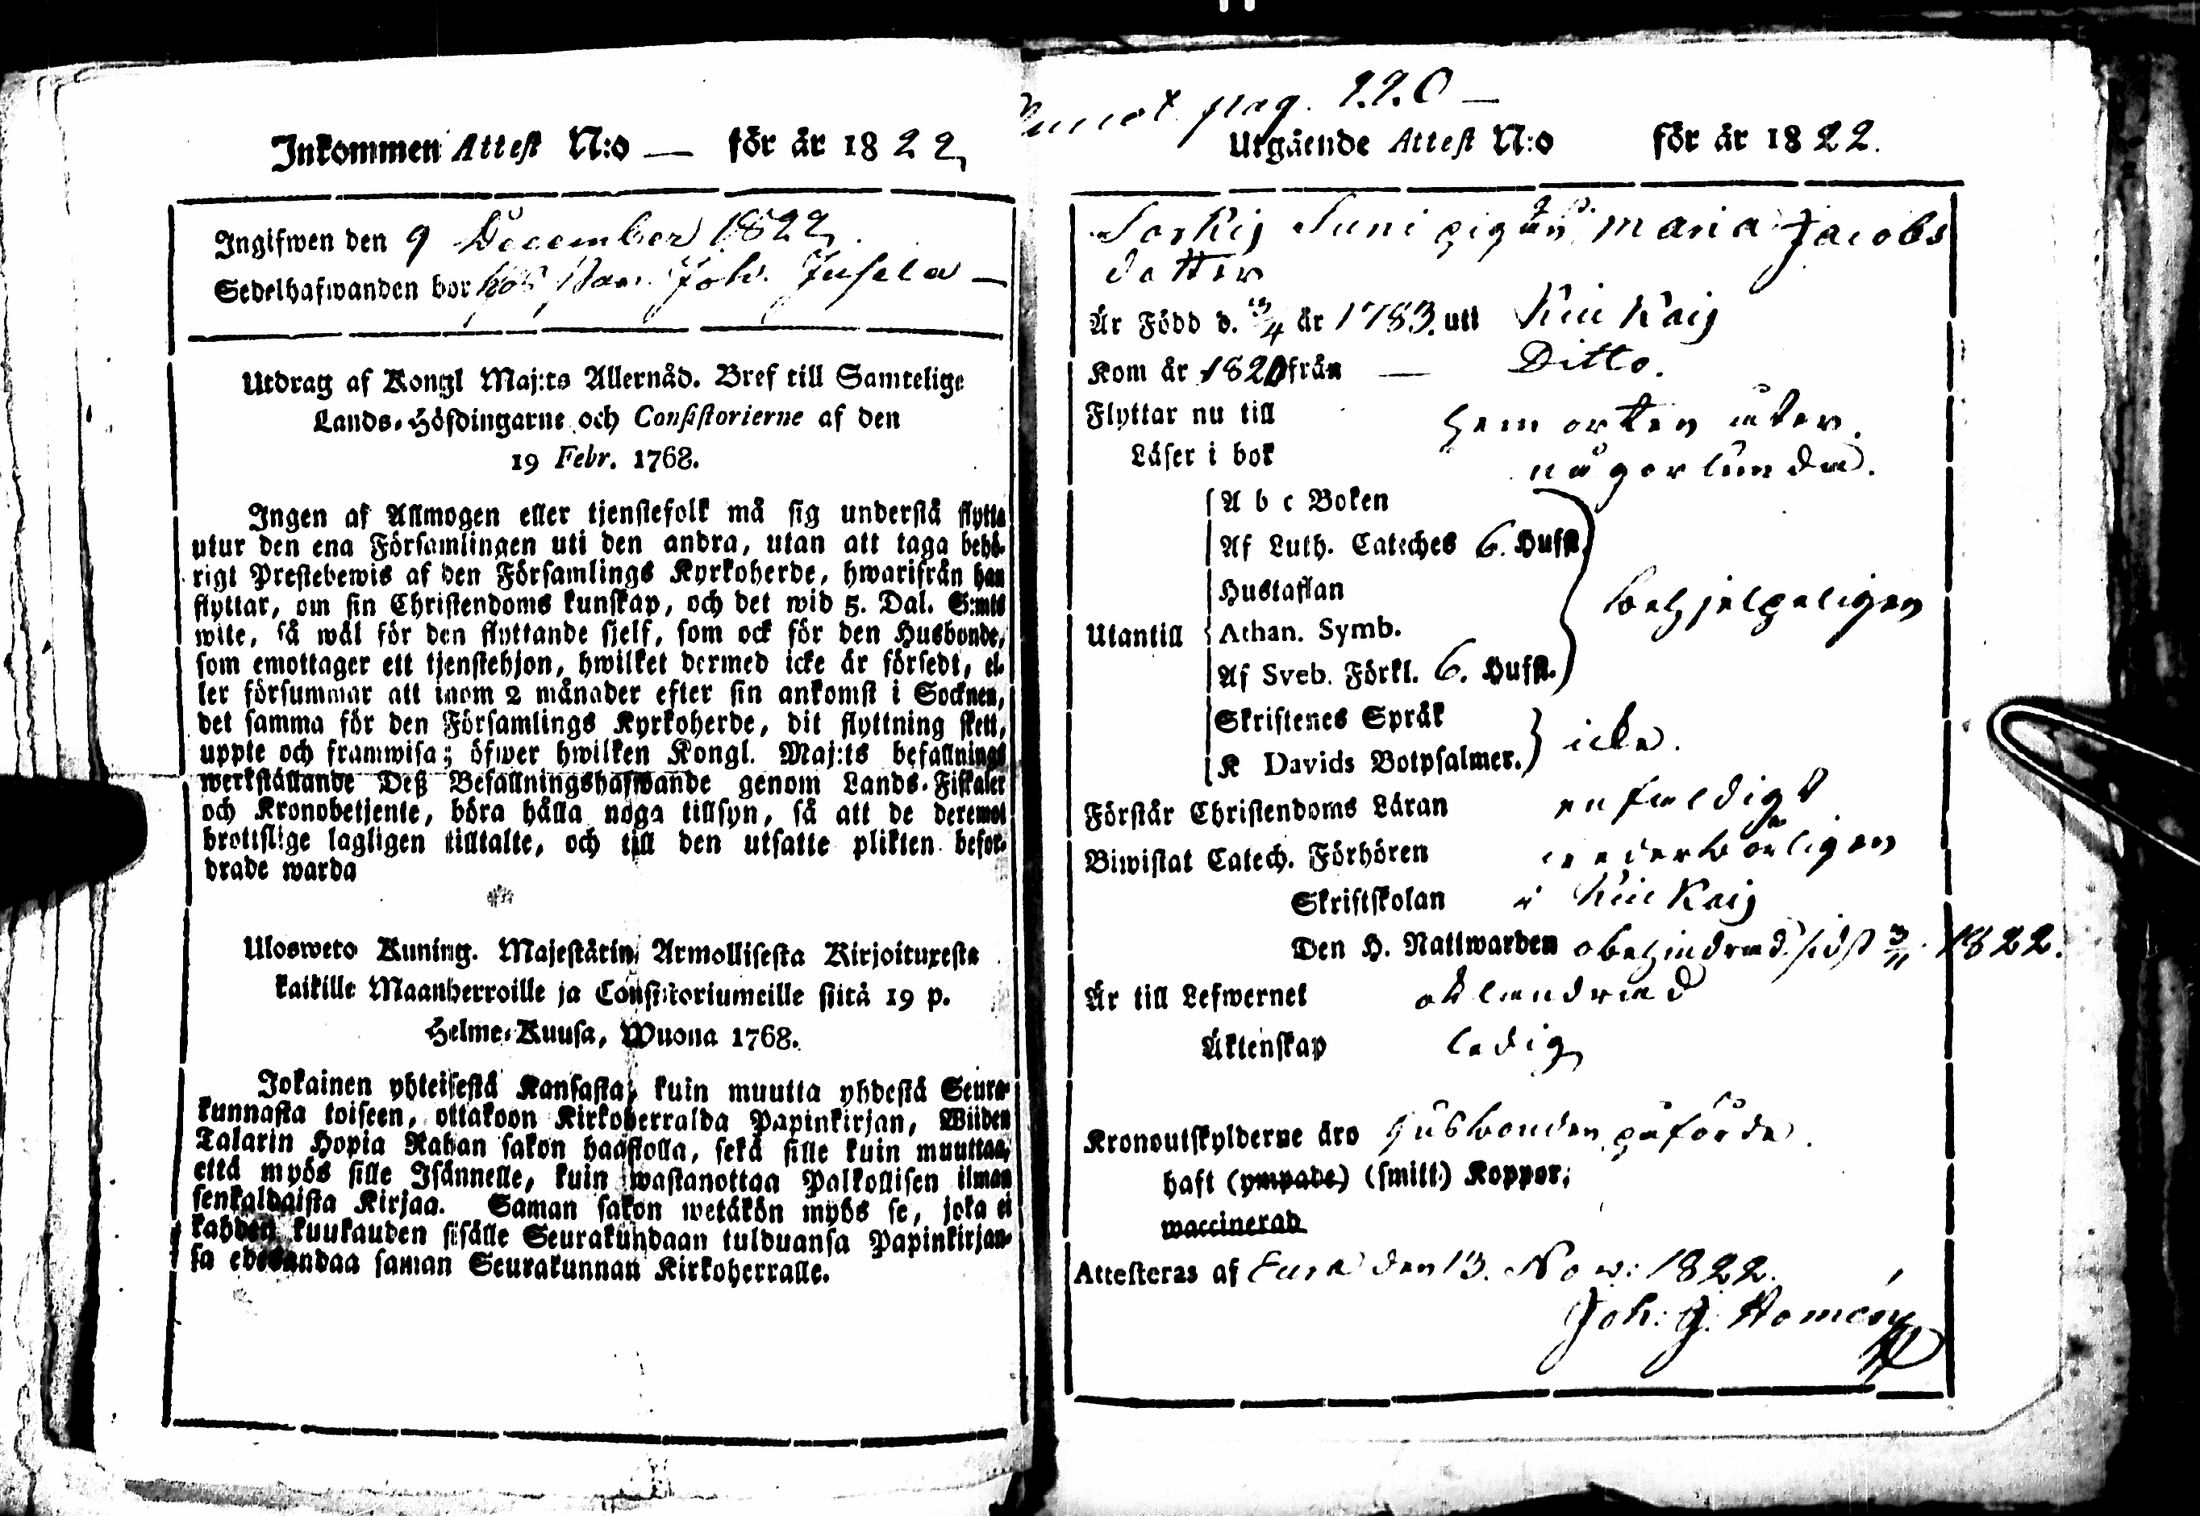 Inkommen Attest N:o — för år 1822,
Ingifwen den 9 December 1822.
Sedelhafwanden bor hos Joh. Jusela —
Utdrag af Kongl Maj:ts Allernåd. Bref till Samtelige
Lands-Höfdingarne och Consistorierne af den
19 Febr. 1768.
Ingen af Allmogen eller tjenstefolk må sig understå flytta
utur den ena Församlingen uti den andra, utan att taga behö-
rigt Prestebewis af den Församlings Kyrkoherde, hwarifrån han
flyttar, om sin Christendoms kunskap, och det wid 5. Dal. S:mts
wite, så wäl för den flyttande sjelf, som ock för den Husbonde,
som emottager ett tjenstehjon, hwilket dermed icke är försedt, el-
ler försummar att inom 2 månader efter sin ankomst i Socknen,
det samma för den Församlings Kyrkoherde, dit flyttning skett,
uppte och framwisa; öfwer hwilken Kongl. Maj:ts befallnings
werkställande Deß Befallningshafwande genom Lands-Fiskaler
och Kronobetjente, böra hålla noga tillsyn, så att de deremot
brottslige lagligen tilltalte, och till den utsatte plikten befor-
drade warda
Ulosweto Kuning. Majestätin Armollisesta Kirjoituxesta
kaikille Maanherroille ja Consistoriumeille siitä 19 p.
Helme-Kuusa, Wuona 1768.
Jokainen yhteisestä Kansasta, kuin muutta yhdestä Seura-
kunnasta toiseen, ottakoon Kirkoherralda Papinkirjan, Wiiden
Talarin Hopia Rahan sakon haastolla, sekä sille kuin muuttaa,
että myös sille Isännelle, kuin wastanottaa Palkollisen ilman
senkaldaista Kirjaa. Saman sakon wetäkön myös se, joka ei
kahden kuukauden sisälle Seurakundaan tulduansa Papinkirjan-
sa edesandaa saman Seurakunnan Kirkoherralle.
pag. 220 —
Utgående Attest N:o för år 1822.
Sorkis Suni pigan Maria Jacobs
dotter
Är Född d. 13/4 år 1783. uti Kiukais
Kom år 1820 från — Ditto.
Flyttar nu till hemorten åter.
Läser i bok någorlunda.
Utantill
A b c Boken
Af Luth. Cateches 6. Hufst.
Hustaflan
Athan. Symb.
Af Sveb. Förkl. 6. Hufst.
behjelpeligen
Skriftenes Språk
K Davids Botpsalmer.
icke.
Förstår Christendoms Läran enfaldigt
Biwistat Catech. Förhören
Skriftskolan i Kiukais
Den H. Nattwarden obehindrad sidst 3/11 1822.
Är till Lefwernet oklandrad
Äktenskap ledig
Kronoutskylderne äro husbonden påförde.
haft (ympade) (smitt) Koppor;
waccinerad
Attesteras af Eura den 13. Nov: 1822.
Joh: G. Homén